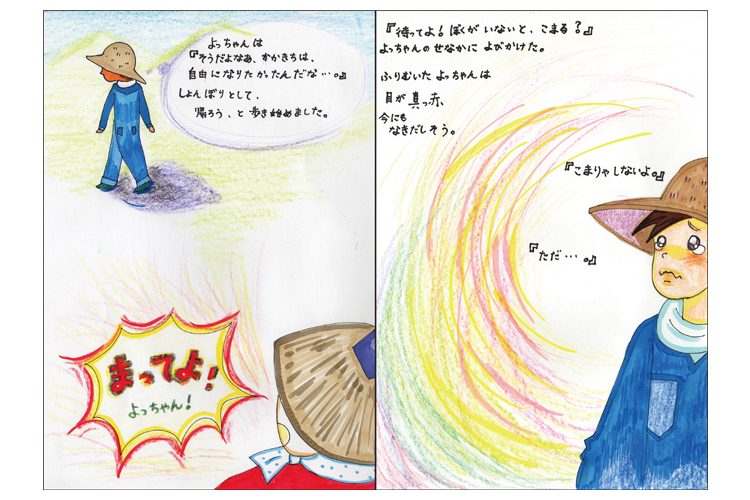 よっちゃんは
『そうだよなあ、かかきちは、
自由になりたかったんだな…。』
しょんぼりとして、
帰ろう、と歩き始めました。
まってよ!
よっちゃん!
『待ってよ!ぼくがいないと、こまる?』
よっちゃんのせなかによびかけた。
ふりむいたよっちゃんは
目が真っ赤、
今にも
なきだしそう。
『こまりゃしないよ。』
『ただ…。』